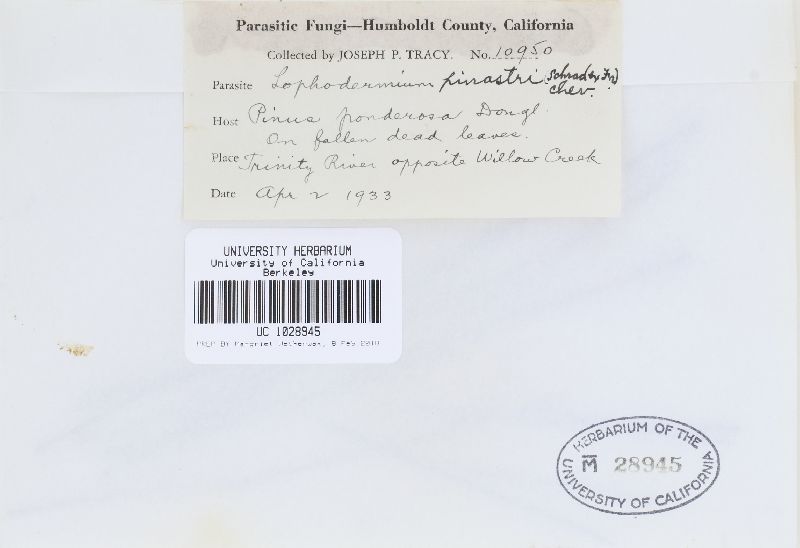 Parasitic Fungi—Humboldt County, California
Collected by JOSEPH P. TRACY. No. 10950
Parasite Lophodermium pinastri (Schrad ex Fr.)
Chev.
Host Pinus ponderosa Dougl.
On fallen dead leaves.
Place Trinity River opposite Willow Creek
Date Apr 2 1933
UNIVERSITY HERBARIUM
University of California
Berkeley
UC 1028945
PREP BY 8 Feb 2010
HERBARIUM OF THE
M 28945
UNIVERSITY OF CALIFORNIA